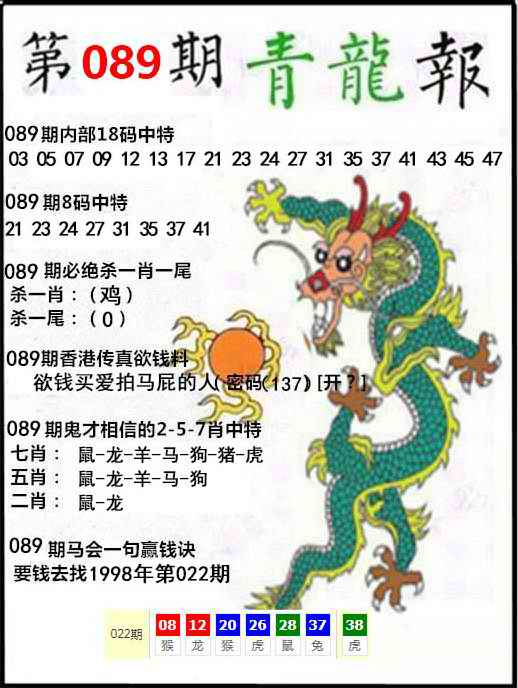 第089期 青龍報
089期内部18码中特
03 05 07 09 12 13 17 21 23 24 27 31 35 37 41 43 45 47
089期8码中特
21 23 24 27 31 35 37 41
089 期必绝杀一肖一尾
杀一肖：（鸡）
杀一尾：（0）
089期香港传真欲钱料
欲钱买爱拍马屁的人(密码(137)[开？]
089期鬼才相信的2-5-7肖中特
七肖： 鼠-龙-羊-马-狗-猪-虎
五肖： 鼠-龙-羊-马-狗
二肖： 鼠-龙
089 期马会一句赢钱诀
要钱去找1998年第022期
022期 08 12 20 26 28 37 38
猴 龙 猴 虎 鼠 兔 虎